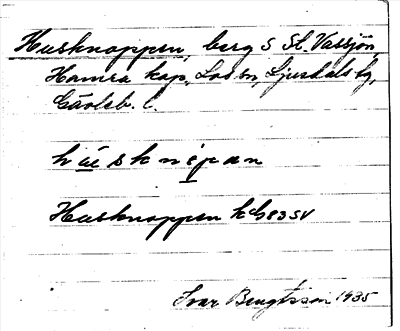 Husknoppen, berg S St. Vassjön,
Hamra kap., Loos sn, Ljusdals tg,
Gävleb. l.
hu̲sknep̲an
Husknoppen
Ivar Bengtsson 1935